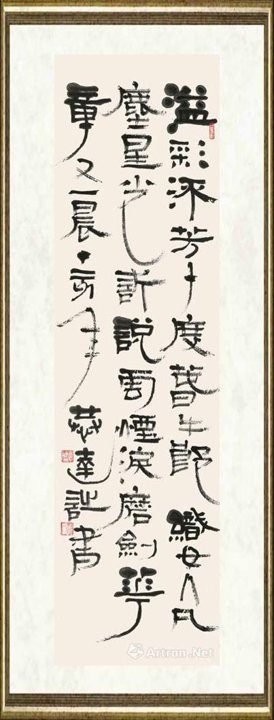 溢彩流芳十度春牛郎織女入凡
塵星光訴說雲煙淚磨劍華
章又一晨亥年恭達詩書
Artron.Net